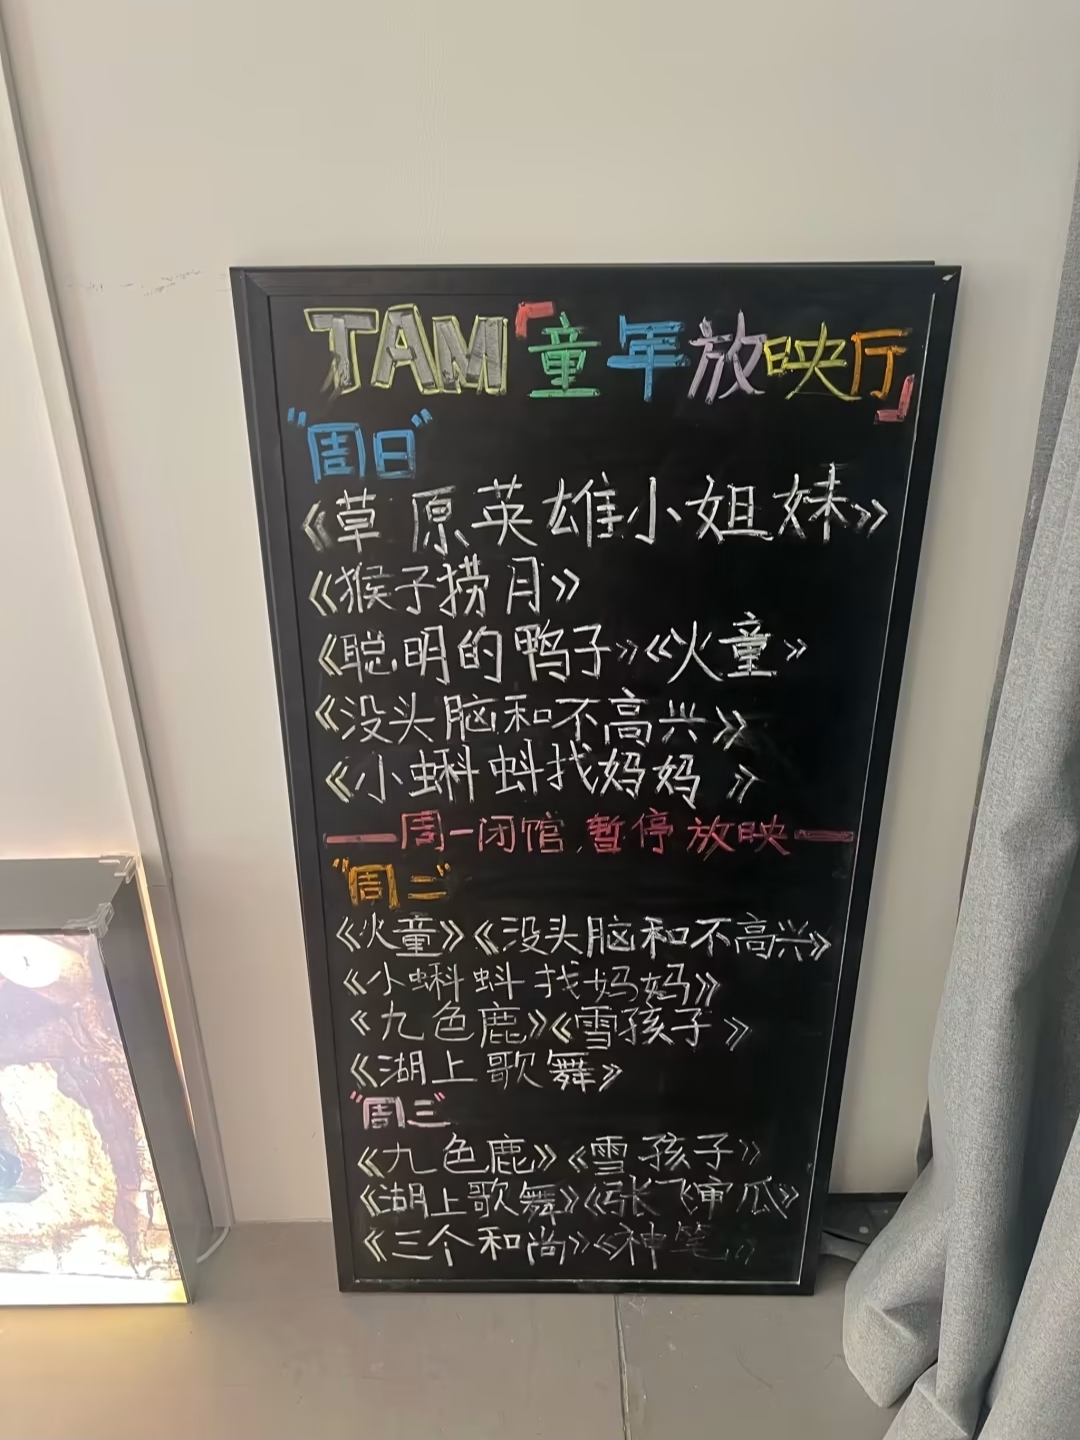 TAM「童年放映厅」
"周日"
《草原英雄小姐妹》
《猴子捞月》
《聪明的鸭子》《火童》
《没头脑和不高兴》
《小蝌蚪找妈妈》
—周一闭馆,暂停放映—
"周二"
《火童》《没头脑和不高兴》
《小蝌蚪找妈妈》
《九色鹿》《雪孩子》
《湖上歌舞》
"周三"
《九色鹿》《雪孩子》
《湖上歌舞》《张飞审瓜》
《三个和尚》《神笔》